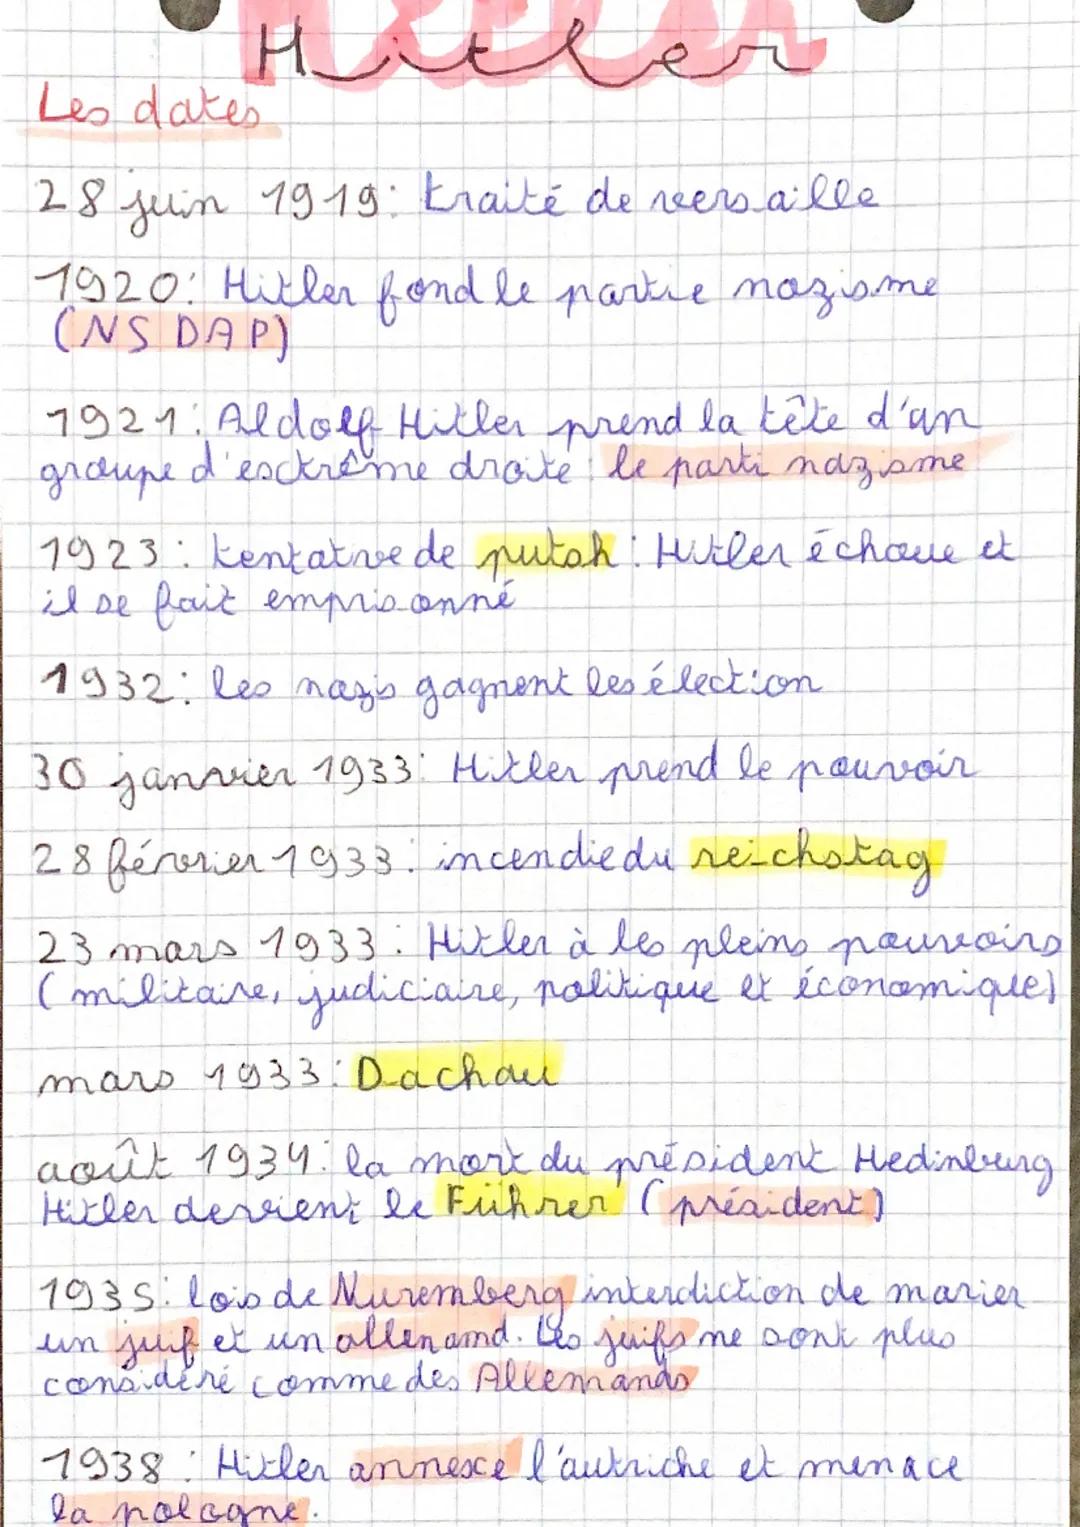 Hitler
Les dates
28 juin 1919: traité de versaille
1920: Hitler fond le partie nazisme
(NSDAP)
1921: Aldolf Hitler prend la tête d'un
groupe d'esctrême droite: le parti nazisme
1923: tentative de putsh: Hitler échoue et
il se fait emprisonné
1932: les nazis gagnent les élection
30 janvier 1933: Hitler prend le pouvoir
28 février 1933: incendie du reichstag
23 mars 1933: Hitler à les pleins pouvoirs
(militaire, judiciaire, politique et économique)
mars 1933: Dachau
août 1934: la mort du président Hedinburg
Hitler devient le Führer (président)
1935: lois de Nuremberg interdiction de marier
un juif et un allemand. Les juifs ne sont plus
considéré comme des Allemands
1938: Hitler annexe l'autriche et menace
la pologne.